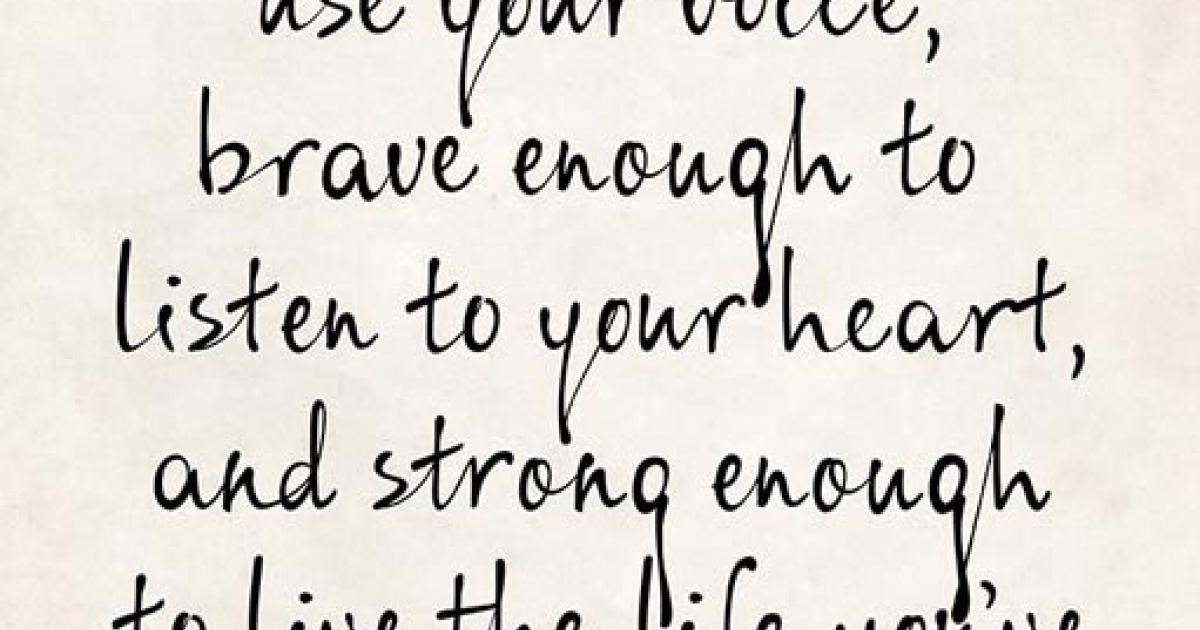 use your voice,
brave enough to
listen to your heart,
and strong enough
to live the life you've